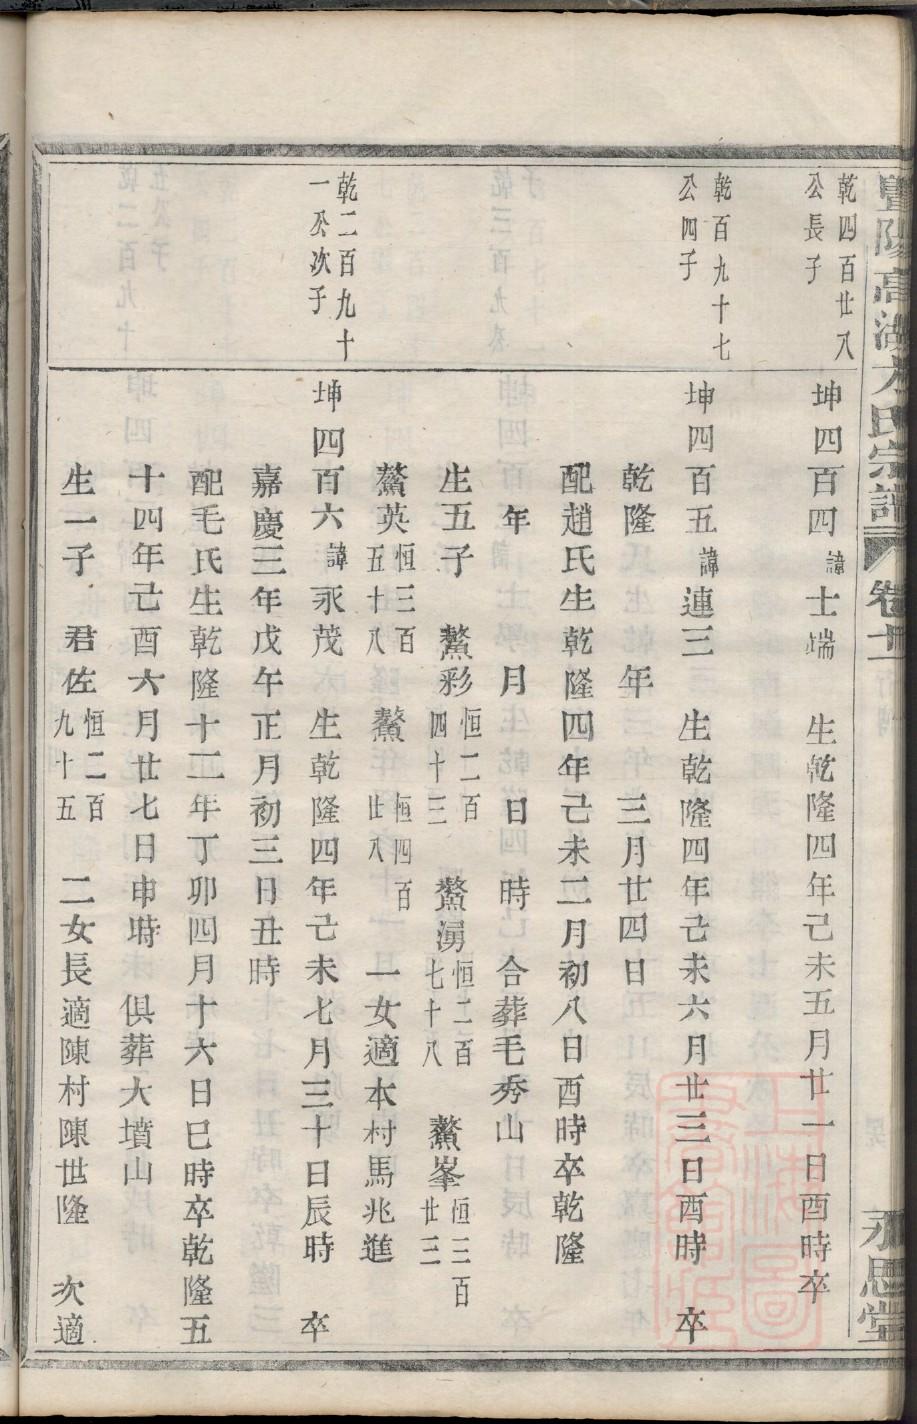 暨陽高湖方氏宗譜 卷十二 永思堂
乾四百廿八
公長子
坤四百四諱士端 生乾隆四年己未五月廿一日酉時卒
乾百九十七
公四子
坤四百五諱連三 生乾隆四年己未六月廿三日酉時 卒
乾隆 年 三月廿四日
配趙氏生乾隆四年己未二月初八日酉時卒乾隆
年 月 日 時 合葬毛秀山
生五子 鰲彩恒二百四十三 鰲湧恒二百七十八 鰲峯恒三百廿三
鰲英恒三百五十八 鰲 恒四百廿八 一女適本村馬兆進
乾二百九十
一公次子
坤四百六諱永茂 生乾隆四年己未七月三十日辰時 卒
嘉慶三年戊午正月初三日丑時
配毛氏生乾隆十二年丁卯四月十六日巳時卒乾隆五
十四年己酉六月廿七日申時 俱葬大墳山
生一子 君佐恒二百九十五 二女長適陳村陳世隆 次適